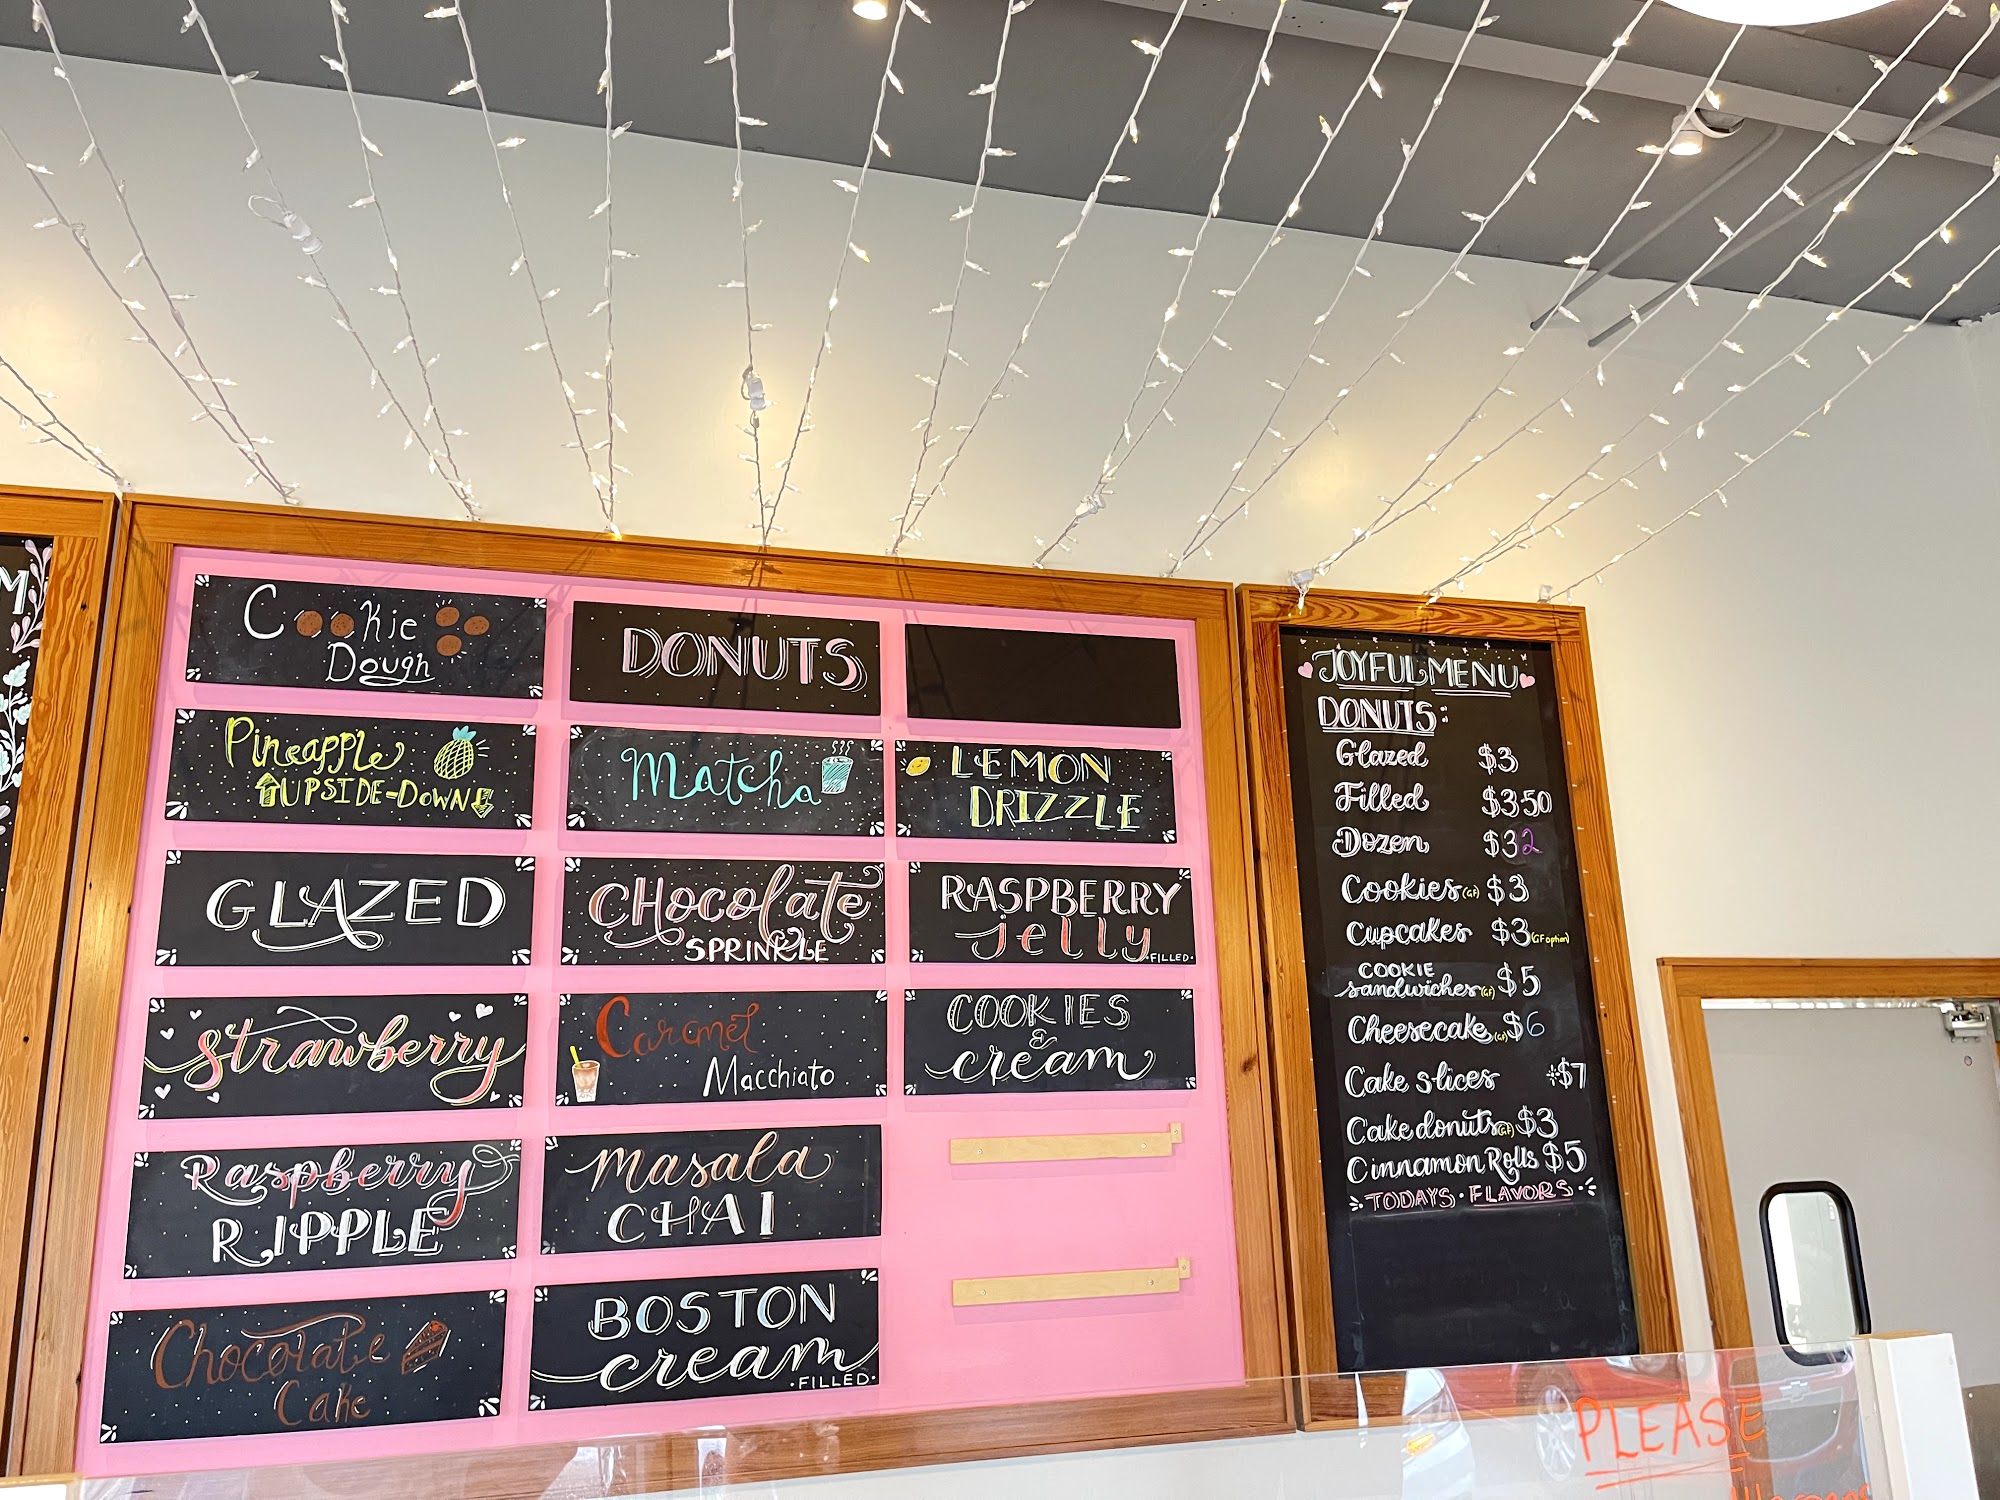 M
Cookie
Dough
DONUTS
Pineapple
UPSIDE-DOWN
Matcha
LEMON
DRIZZLE
GLAZED
CHocolate
SPRINKLE
RASPBERRY
jelly
·FILLED·
Strawberry
Caramel
Macchiato
COOKIES
&
cream
Raspberry
RIPPLE
Masala
CHAI
Chocolate
Cake
BOSTON
cream
·FILLED·
JOYFUL MENU
DONUTS:
Glazed $3
Filled $3.50
Dozen $32
Cookies (GF) $3
Cupcakes $3 (GF option)
COOKIE
sandwiches (GF) $5
Cheesecake (GF) $6
Cake slices $7
Cake donuts (GF) $3
Cinnamon Rolls $5
TODAYS · FLAVORS
PLEASE